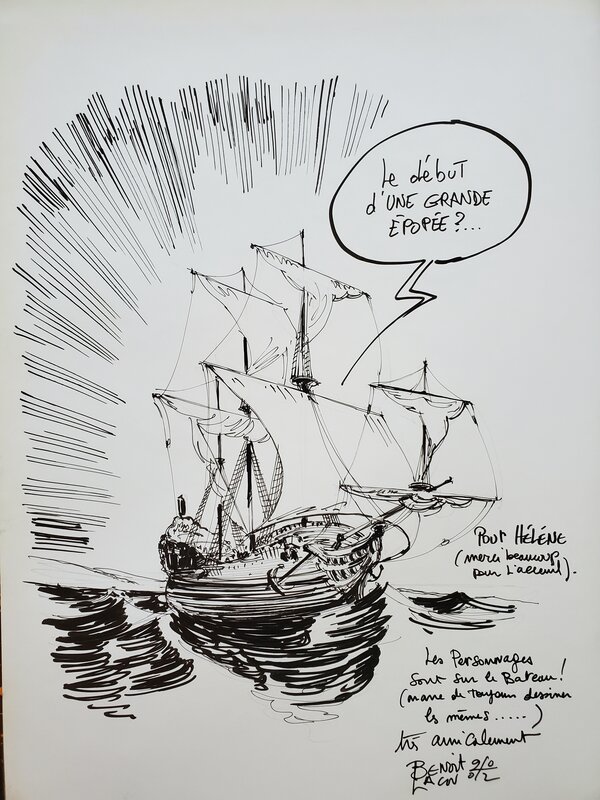 Le début
d'UNE GRANDE
ÉPOPÉE?...
Pour HÉLÈNE
(merci beaucoup
pour l'acceuil).
Les Personnages
sont sur le Bateau!
(marre de toujours dessiner
les mêmes.....)
très amicalement
BENOIT
LACOU